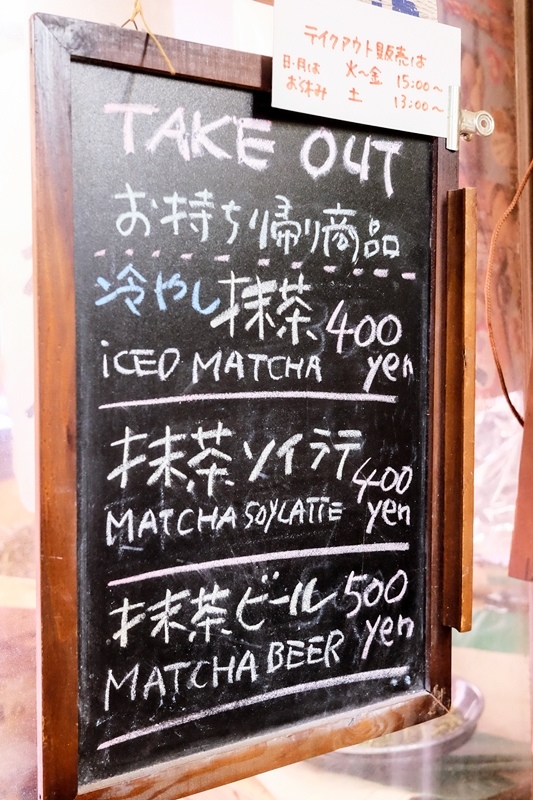 テイクアウト販売は
日・月は 火〜金 15:00〜
お休み 土 13:00〜
TAKE OUT
お持ち帰り商品
冷やし抹茶 400
ICED MATCHA yen
抹茶ソイラテ 400
MATCHA SOYLATTE yen
抹茶ビール 500
MATCHA BEER yen